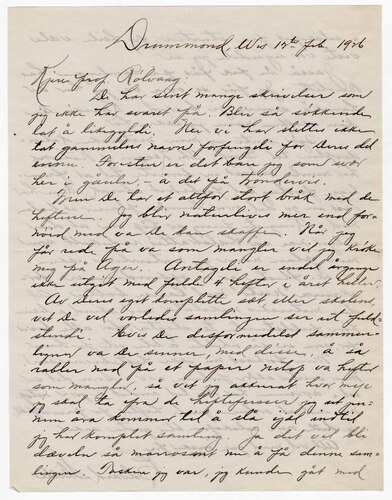 Drummond, Wis 12th feb. 1926
Kjere prof. Rölvaag
De har sent mange skrivelser som
jeg ikke har svart på. Blir så
lat å likegyldi. Nei vi har slettes ikke
tat gammelens navn forfengeli for Deres del
ennu. Foresten er det bare jeg som svær
her i gården, – å det på
Men De har et altfor stort bråk med de
heftene. Jeg blir naturligvis mer end for-
nöid med va De kan skaffe. Når jeg
får rede på va som mangler vil jeg
mig på leger. Antagele er endel årgange
ikke utgit med fulle 4 hefter i året heller.
Av Deres eget komplette sæt eller skolens,
vet De vel vorledes samlingen ser ut fuld-
stendi. Hvis De desformedelst sammen-
ligner va De sender, med disse, å så
rabler ned på et papir nitop va hefter
som mangler, så vet jeg akkurat hvor meje
jeg skal ta ifra de å så jen-
nem åra kommer til å slå ihjel indtil
jeg har komplet samling. Ja det vil bli
dævelen så morrosomt nu å få denne sam-
lingen. Ønsker jeg var, jeg kunde gåt med